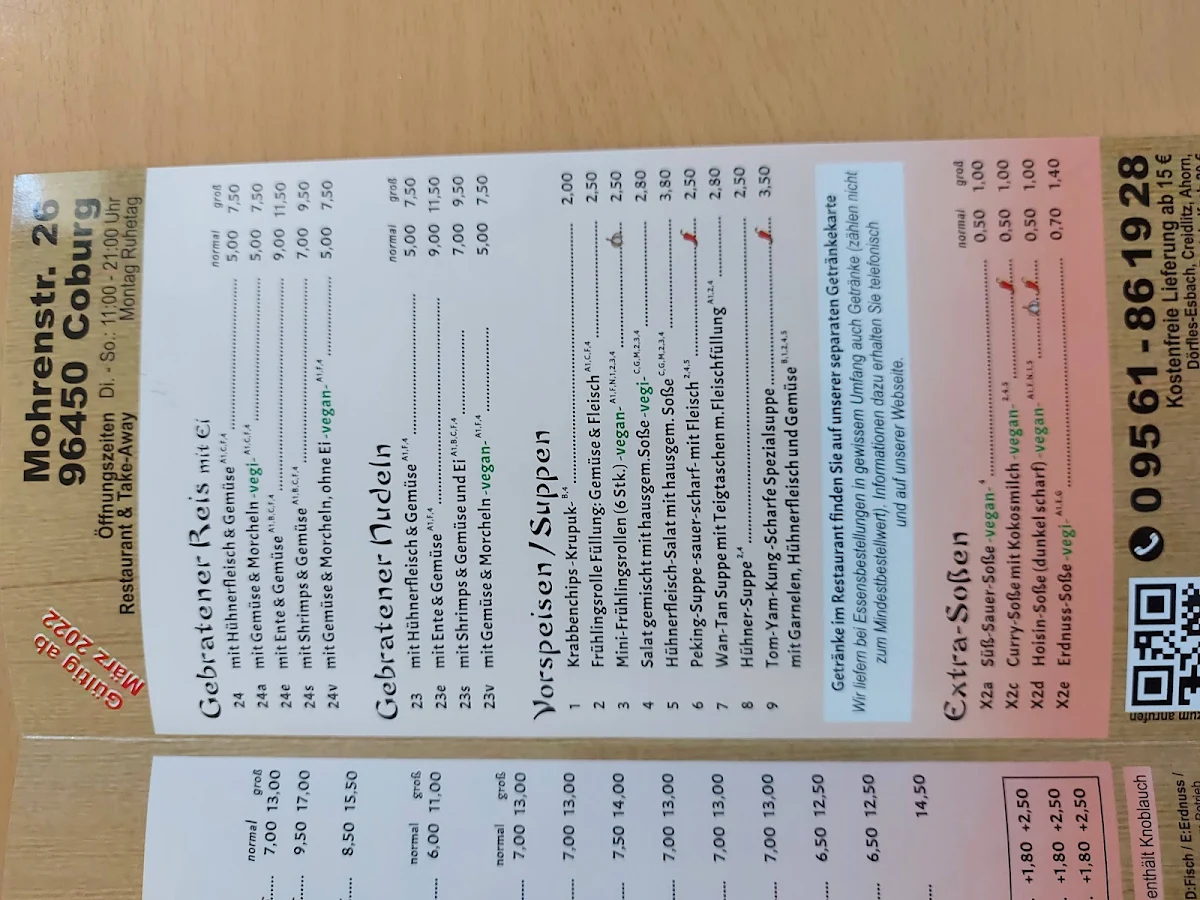 Mohrenstr. 26
96450 Coburg
Öffnungszeiten Di. - So.: 11:00 - 21:00 Uhr
Restaurant & Take-Away Montag Ruhetag
Gültig ab
März 2022
Gebratener Reis mit Ei normal groß
24 mit Hühnerfleisch & Gemüse A1,C,F,4 5,00 7,50
24a mit Gemüse & Morcheln -vegi- A1,C,F,4 5,00 7,50
24e mit Ente & Gemüse A1,B,C,F,4 9,00 11,50
24s mit Shrimps & Gemüse A1,B,C,F,4 7,00 9,50
24v mit Gemüse & Morcheln, ohne Ei -vegan- A1,F,4 5,00 7,50
Gebratener Nudeln normal groß
23 mit Hühnerfleisch & Gemüse A1,F,4 5,00 7,50
23e mit Ente & Gemüse A1,F,4 9,00 11,50
23s mit Shrimps & Gemüse und Ei A1,B,C,F,4 7,00 9,50
23v mit Gemüse & Morcheln -vegan- A1,F,4 5,00 7,50
Vorspeisen / Suppen
1 Krabbenchips - Krupuk- B,4 2,00
2 Frühlingsrolle Füllung: Gemüse & Fleisch A1,C,F,4 2,50
3 Mini-Frühlingsrollen (6 Stk.) -vegan- A1,F,N,1,2,3,4 2,50
4 Salat gemischt mit hausgem. Soße -vegi- C,G,M,2,3,4 2,80
5 Hühnerfleisch-Salat mit hausgem. Soße C,G,M,2,3,4 3,80
6 Peking-Suppe -sauer-scharf- mit Fleisch 2,4,5 2,50
7 Wan-Tan Suppe mit Teigtaschen m. Fleischfüllung A1,2,4 2,80
8 Hühner-Suppe 2,4 2,50
9 Tom-Yam-Kung -Scharfe Spezialsuppe 3,50
mit Garnelen, Hühnerfleisch und Gemüse B,1,2,4,5
Getränke im Restaurant finden Sie auf unserer separaten Getränkekarte
Wir liefern bei Essensbestellungen in gewissem Umfang auch Getränke (zählen nicht
zum Mindestbestellwert). Informationen dazu erhalten Sie telefonisch
und auf unserer Webseite.
Extra-Soßen normal groß
X2a Süß-Sauer-Soße -vegan- 4 0,50 1,00
X2c Curry-Soße mit Kokosmilch -vegan- 2,4,5 0,50 1,00
X2d Hoisin-Soße (dunkel scharf) -vegan- A1,F,N,1,5 0,50 1,00
X2e Erdnuss-Soße -vegi- A1,E,G 0,70 1,40
09561 - 86 19 28
Kostenfreie Lieferung ab 15 €
Dörfles-Esbach, Creidlitz, Ahorn,
anrufen
normal groß
7,00 13,00
9,50 17,00
8,50 15,50
normal groß
6,00 11,00
normal groß
7,00 13,00
7,00 13,00
7,50 14,00
7,00 13,00
7,00 13,00
7,00 13,00
6,50 12,50
6,50 12,50
14,50
+1,80 +2,50
+1,80 +2,50
+1,80 +2,50
enthält Knoblauch
D:Fisch / E:Erdnuss /